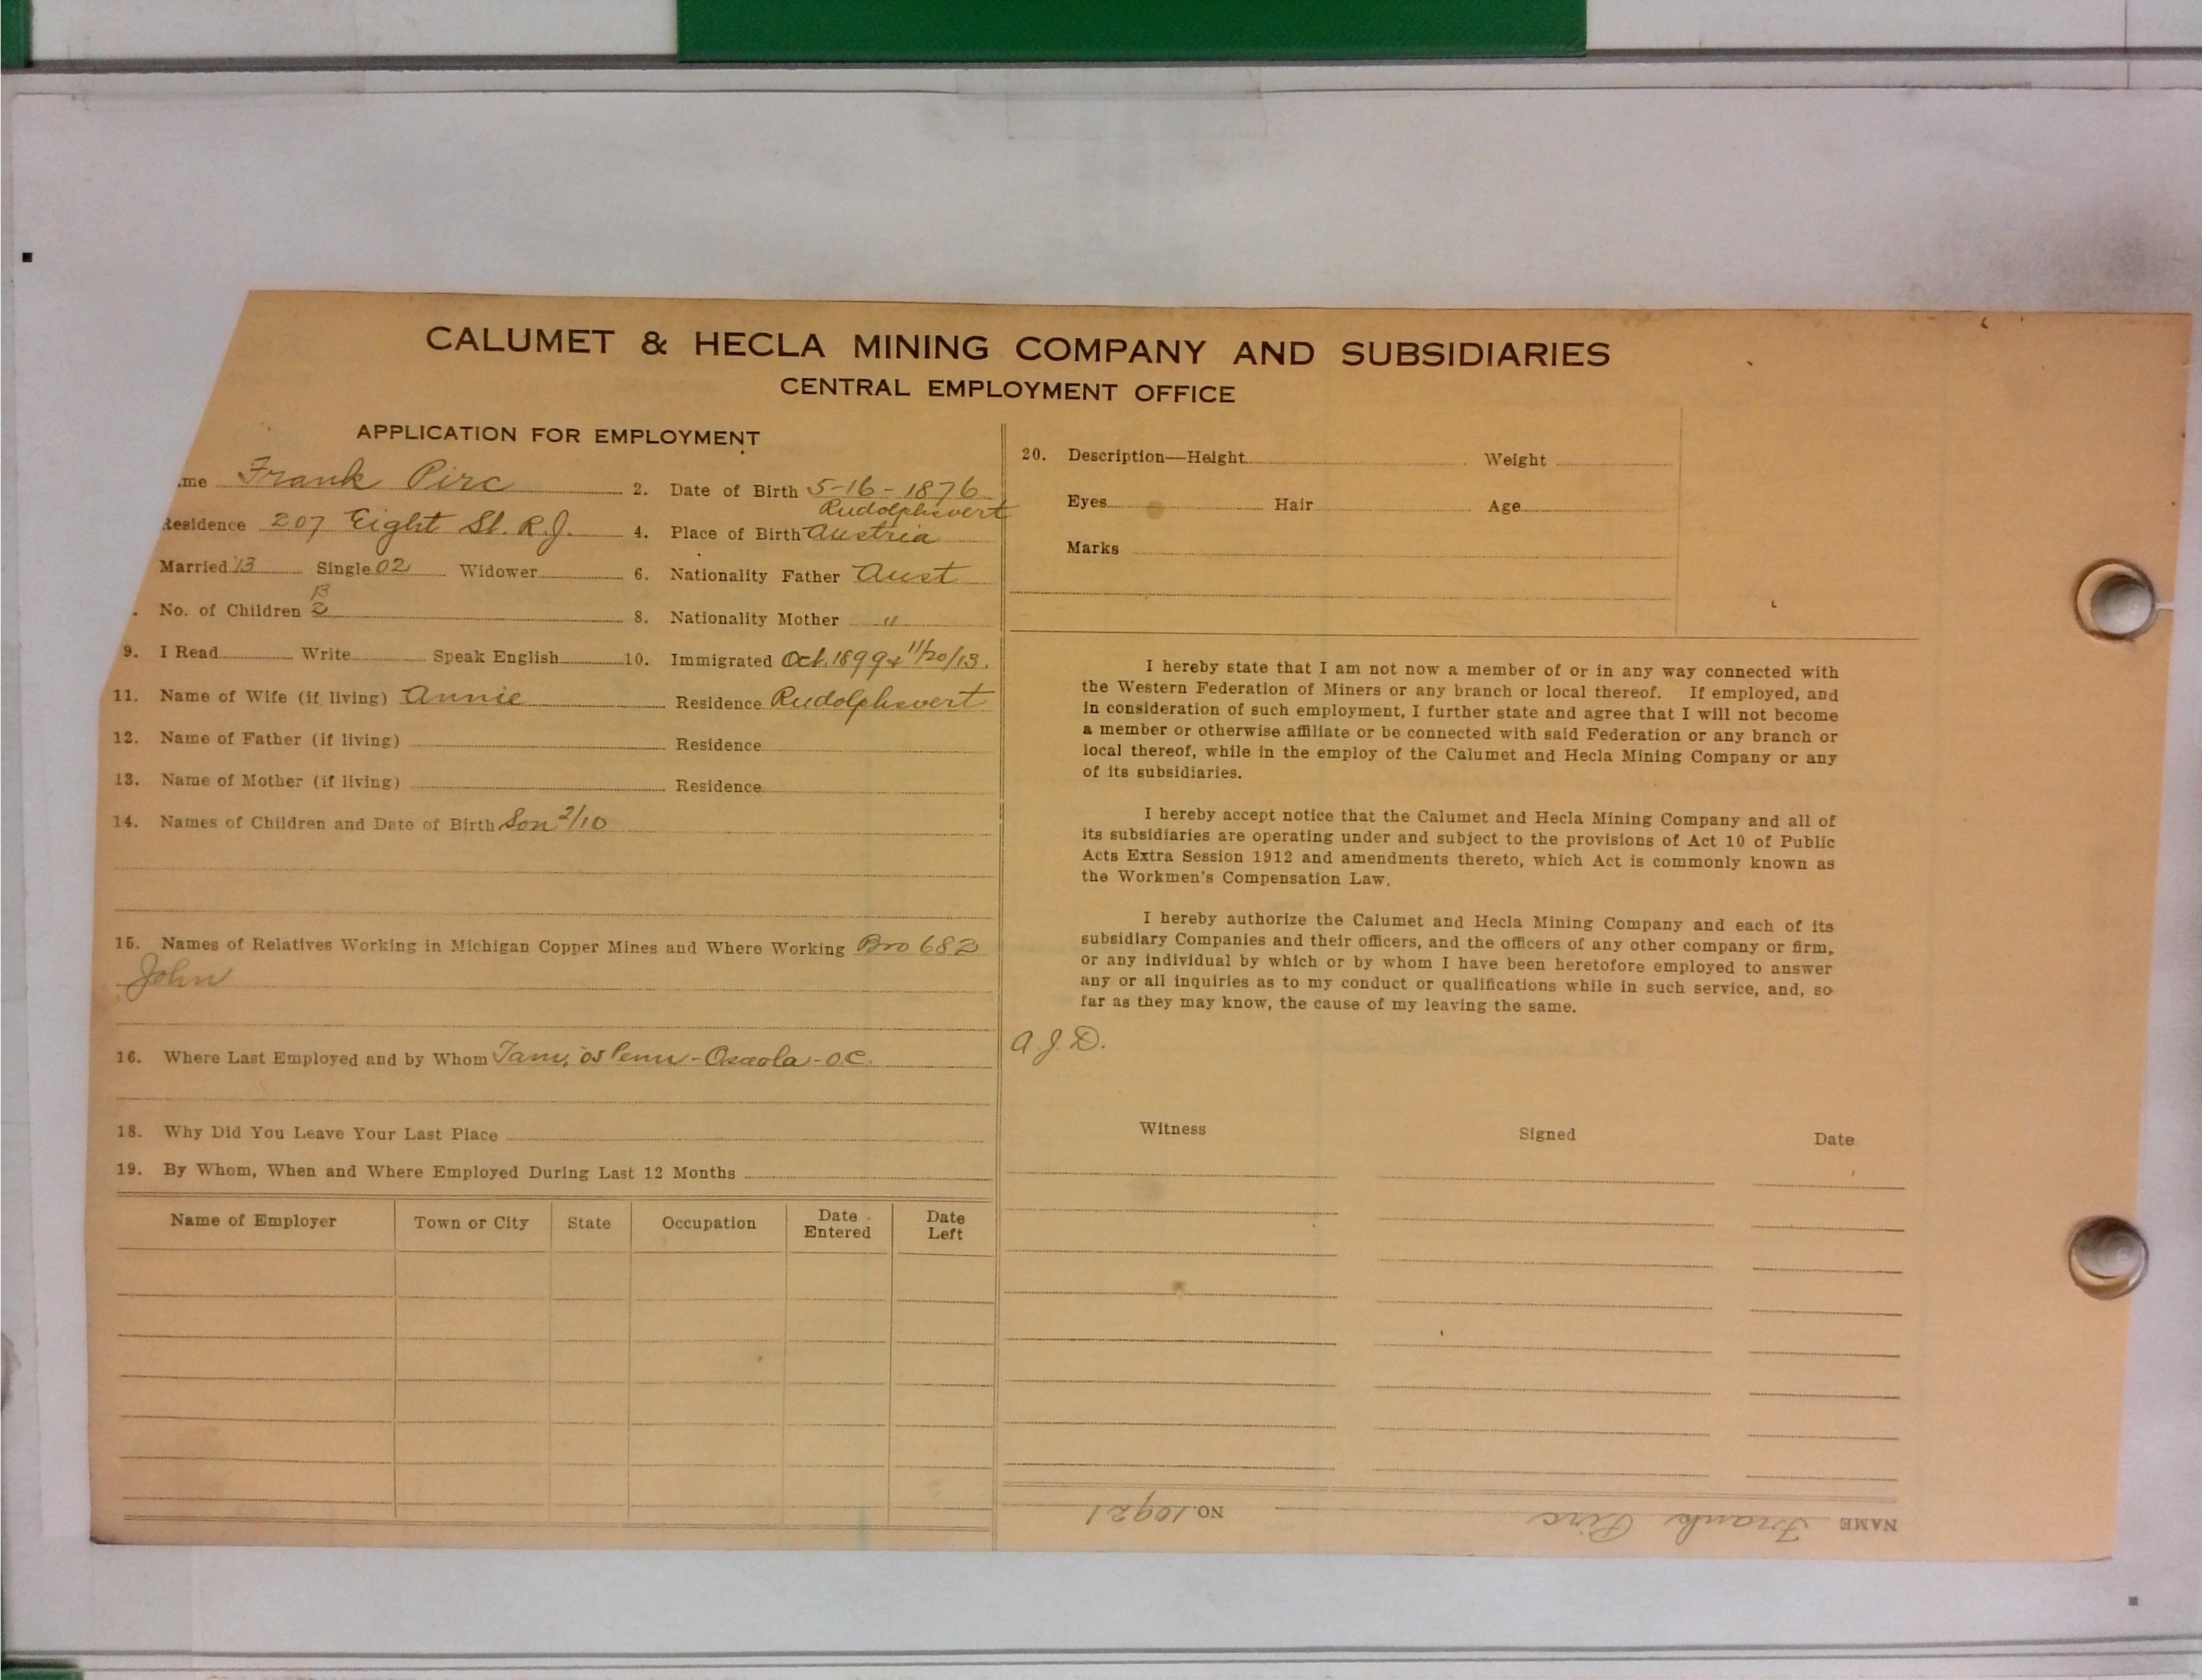 CALUMET & HECLA MINING COMPANY AND SUBSIDIARIES
CENTRAL EMPLOYMENT OFFICE
APPLICATION FOR EMPLOYMENT
me Frank Pirc 2. Date of Birth 5-16-1876
Residence 207 Eight St. R.J. 4. Place of Birth Rudolphsvert Austria
Married '13 Single 02 Widower 6. Nationality Father Aust
No. of Children 2 8. Nationality Mother "
9. I Read Write Speak English 10. Immigrated Oct. 1899 & 11/20/13.
11. Name of Wife (if living) Annie Residence Rudolphsvert
12. Name of Father (if living) Residence
13. Name of Mother (if living) Residence
14. Names of Children and Date of Birth Son 2/10
15. Names of Relatives Working in Michigan Copper Mines and Where Working Bro 682
John
16. Where Last Employed and by Whom Tam, - Osceola - O.C.
18. Why Did You Leave Your Last Place
19. By Whom, When and Where Employed During Last 12 Months
Name of Employer Town or City State Occupation Date Entered Date Left
20. Description—Height Weight
Eyes Hair Age
Marks
I hereby state that I am not now a member of or in any way connected with
the Western Federation of Miners or any branch or local thereof. If employed, and
in consideration of such employment, I further state and agree that I will not become
a member or otherwise affiliate or be connected with said Federation or any branch or
local thereof, while in the employ of the Calumet and Hecla Mining Company or any
of its subsidiaries.
I hereby accept notice that the Calumet and Hecla Mining Company and all of
its subsidiaries are operating under and subject to the provisions of Act 10 of Public
Acts Extra Session 1912 and amendments thereto, which Act is commonly known as
the Workmen's Compensation Law.
I hereby authorize the Calumet and Hecla Mining Company and each of its
subsidiary Companies and their officers, and the officers of any other company or firm,
or any individual by which or by whom I have been heretofore employed to answer
any or all inquiries as to my conduct or qualifications while in such service, and, so
far as they may know, the cause of my leaving the same.
A.J.D.
Witness Signed Date
NAME Frank Pirc NO. 10921